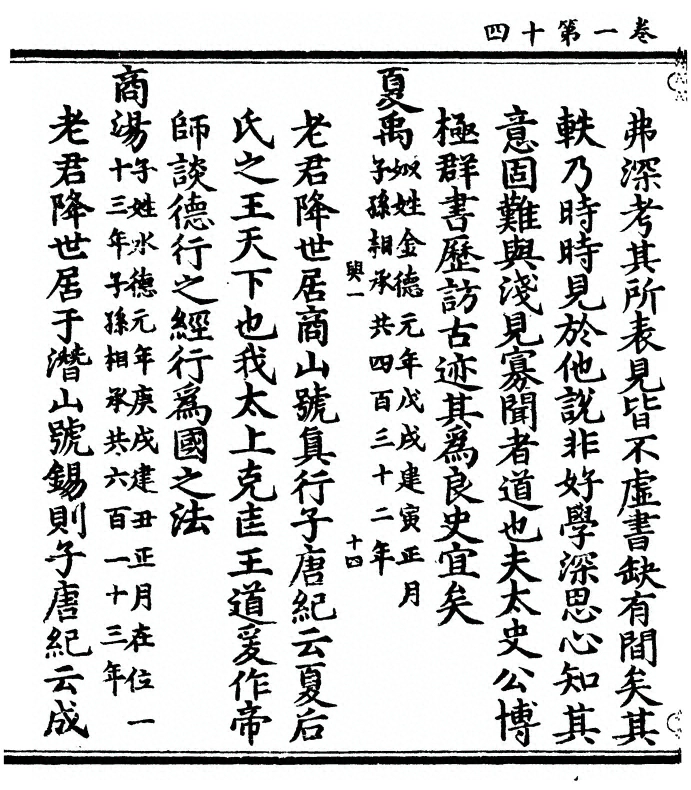 卷一第十四
弗深考其所表見皆不虛書缺有間矣其
軼乃時時見於他說非好學深思心知其
意固難與淺見寡聞者道也夫太史公博
極群書歷訪古迹其爲良史宜矣
夏禹姒姓金德元年戊戌建寅正月
子孫相承共四百三十二年
與一
十四
老君降世居商山號真行子唐紀云夏后
氏之王天下也我太上克啓王道爰作帝
師談德行之經行爲國之法
商湯子姓水德元年庚戌建丑正月在位一
十三年子孫相承共六百一十三年
老君降世居于潛山號錫則子唐紀云成